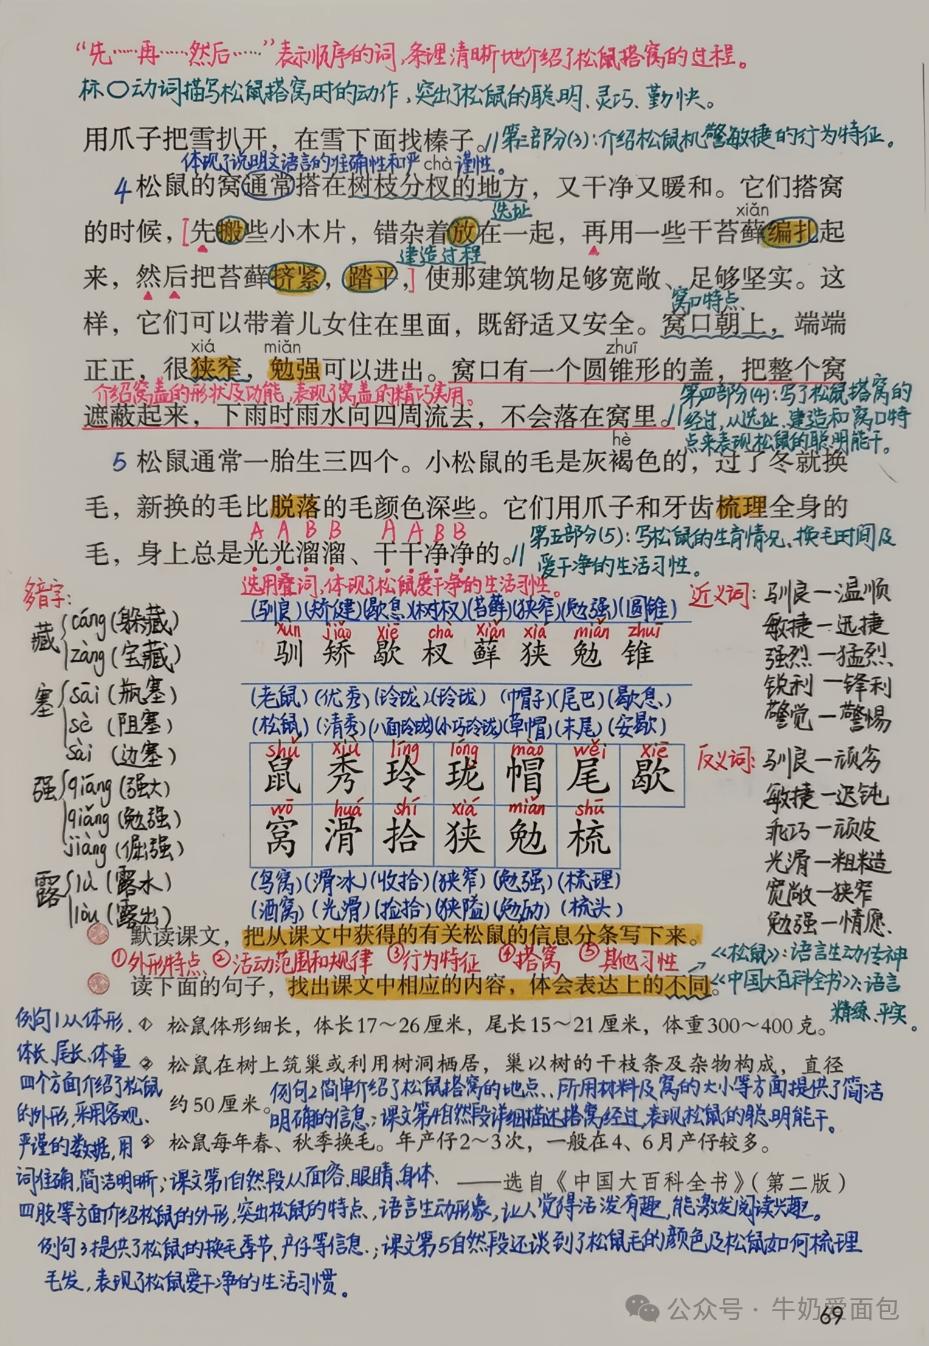 “先……再……然后……”表示顺序的词,条理清晰地介绍了松鼠搭窝的过程。
标〇动词描写松鼠搭窝时的动作,突出了松鼠的聪明、灵巧、勤快。
用爪子把雪扒开，在雪下面找榛子。//第三部分(3):介绍松鼠机警敏捷的行为特征。
体现了说明文语言的准确性和严谨性。
chà
4 松鼠的窝通常搭在树枝分杈的地方，又干净又暖和。它们搭窝
选址
xiǎn
的时候，[先搬些小木片，错杂着放在一起，再用一些干苔藓编扎起
建造过程
来，然后把苔藓挤紧，踏平,]使那建筑物足够宽敞、足够坚实。这
窝口特点
样，它们可以带着儿女住在里面，既舒适又安全。窝口朝上，端端
xiá miǎn zhuī
正正，很狭窄，勉强可以进出。窝口有一个圆锥形的盖，把整个窝
介绍窝盖的形状及功能,表现了窝盖的精巧实用。
遮蔽起来，下雨时雨水向四周流去，不会落在窝里。//
第四部分(4):写了松鼠搭窝的
经过,从选址、建造和窝口特
点来表现松鼠的聪明能干。
hè
5 松鼠通常一胎生三四个。小松鼠的毛是灰褐色的，过了冬就换
毛，新换的毛比脱落的毛颜色深些。它们用爪子和牙齿梳理全身的
A A B B A A B B
毛，身上总是光光溜溜、干干净净的。//
第五部分(5):写松鼠的生育情况、换毛时间及
爱干净的生活习性。
选用叠词,体现了松鼠爱干净的生活习性。
多音字:
藏 cáng (躲藏)
zàng (宝藏)
塞 sāi (瓶塞)
sè (阻塞)
sài (边塞)
强 qiáng (强大)
qiǎng (勉强)
jiàng (倔强)
露 lù (露水)
lòu (露出)
(驯良)(矫健)(歇息)(树杈)(苔藓)(狭窄)(勉强)(圆锥)
xùn jiǎo xiē chà xiǎn xiá miǎn zhuī
驯 矫 歇 杈 藓 狭 勉 锥
(老鼠)(优秀)(玲珑)(玲珑)(帽子)(尾巴)(歇息)
(松鼠)(清秀)(八面玲珑)(小巧玲珑)(草帽)(末尾)(安歇)
shǔ xiù líng lóng mào wěi xiē
鼠 秀 玲 珑 帽 尾 歇
wō huá shí xiá miǎn shū
窝 滑 拾 狭 勉 梳
(鸟窝)(滑冰)(收拾)(狭窄)(勉强)(梳理)
(酒窝)(光滑)(捡拾)(狭隘)(勉励)(梳头)
近义词: 驯良—温顺
敏捷—迅捷
强烈—猛烈
锐利—锋利
警觉—警惕
反义词: 驯良—顽劣
敏捷—迟钝
乖巧—顽皮
光滑—粗糙
宽敞—狭窄
勉强—情愿
默读课文，把从课文中获得的有关松鼠的信息分条写下来。
①外形特点 ②活动范围和规律 ③行为特征 ④搭窝 ⑤其他习性
读下面的句子，找出课文中相应的内容，体会表达上的不同。
《松鼠》:语言生动传神
《中国大百科全书》:语言
精练、平实。
① 松鼠体形细长，体长17～26厘米，尾长15～21厘米，体重300～400克。
② 松鼠在树上筑巢或利用树洞栖居，巢以树的干枝条及杂物构成，直径
约50厘米。
例句2简单介绍了松鼠搭窝的地点、所用材料及窝的大小等方面,提供了简洁
明确的信息;课文第4自然段详细描述搭窝经过,表现松鼠的聪明能干。
③ 松鼠每年春、秋季换毛。年产仔2～3次，一般在4、6月产仔较多。
——选自《中国大百科全书》（第二版）
例句1从体形、
体长、尾长、体重
四个方面介绍了松鼠
的外形,采用客观、
严谨的数据,用
词准确,简洁明晰;课文第1自然段从面容、眼睛、身体、
四肢等方面介绍松鼠的外形,突出松鼠的特点,语言生动形象,让人觉得活泼有趣,能激发阅读兴趣。
例句3提供了松鼠的换毛季节、产仔等信息;课文第5自然段还谈到了松鼠毛的颜色及松鼠如何梳理
毛发,表现了松鼠爱干净的生活习惯。
公众号·牛奶爱面包
69